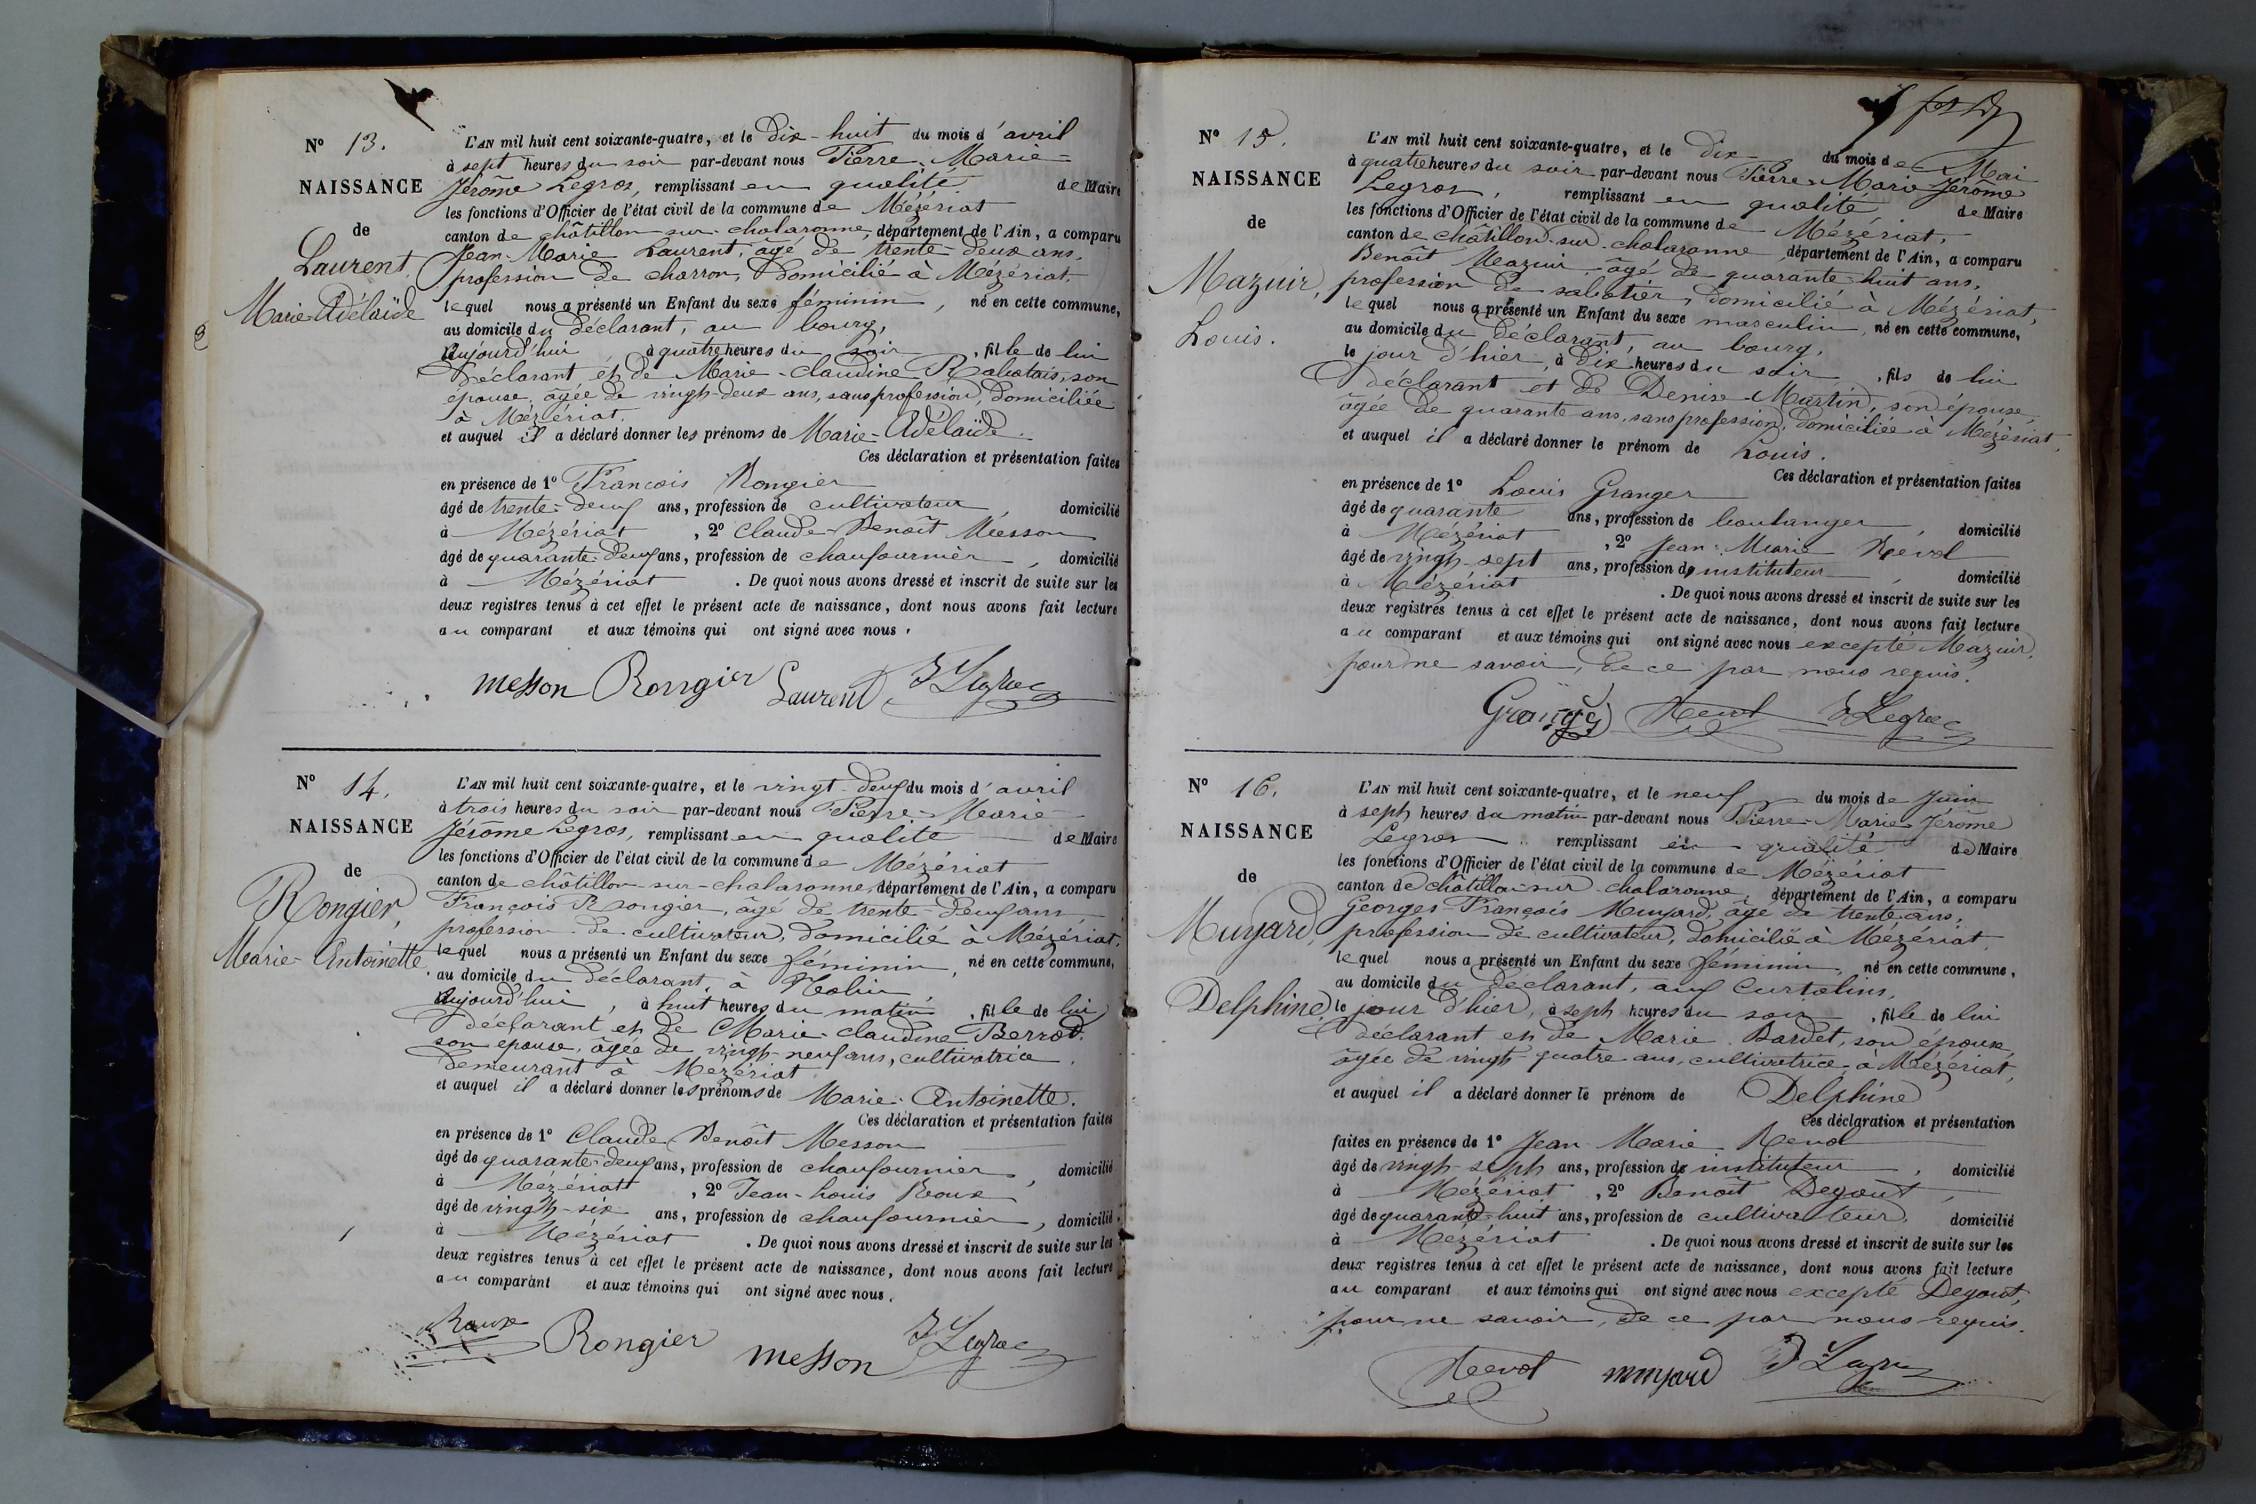 N° 13.
NAISSANCE
de
Laurent,
Marie-Adélaïde
L'AN mil huit cent soixante-quatre, et le dix-huit du mois d'avril
à sept heures du soir par-devant nous Pierre-Marie-
Jérôme Legros, remplissant en qualité de Maire
les fonctions d'Officier de l'état civil de la commune de Mézériat
canton de châtillon-sur-chalaronne, département de l'Ain, a comparu
Jean-Marie Laurent, âgé de trente-deux ans,
profession de charron, domicilié à Mézériat,
lequel nous a présenté un Enfant du sexe féminin, né en cette commune,
au domicile du déclarant, au bourg,
aujourd'hui à quatre heures du soir, fille de lui
déclarant et de Marie-claudine Rabatais, son
épouse, âgée de vingt-deux ans, sans profession, domiciliée
à Mézériat
et auquel il a déclaré donner les prénoms de Marie-Adélaïde.
Ces déclaration et présentation faites
en présence de 1° François Rongier
âgé de trente-deux ans, profession de cultivateur domicilié
à Mézériat, 2° Claude-Benoît Messon
âgé de quarante-deux ans, profession de chaufournier, domicilié
à Mézériat. De quoi nous avons dressé et inscrit de suite sur les
deux registres tenus à cet effet le présent acte de naissance, dont nous avons fait lecture
au comparant et aux témoins qui ont signé avec nous.
messon Rongier Laurent J Legros
N° 14.
NAISSANCE
de
Rongier,
Marie-Antoinette
L'AN mil huit cent soixante-quatre, et le vingt-deux du mois d'avril
à trois heures du soir par-devant nous Pierre-Marie-
Jérôme Legros, remplissant en qualité de Maire
les fonctions d'Officier de l'état civil de la commune de Mézériat
canton de châtillon-sur-chalaronne, département de l'Ain, a comparu
François Rongier, âgé de trente-deux ans,
profession de cultivateur, domicilié à Mézériat,
lequel nous a présenté un Enfant du sexe féminin, né en cette commune,
au domicile du déclarant, à
aujourd'hui, à huit heures du matin, fille de lui
déclarant et de Marie-claudine Berrod,
son épouse, âgée de vingt-neuf ans, cultivatrice,
demeurant à Mézériat
et auquel il a déclaré donner les prénoms de Marie-Antoinette.
Ces déclaration et présentation faites
en présence de 1° Claude Benoît Messon
âgé de quarante-deux ans, profession de chaufournier, domicilié
à Mézériat, 2° Jean-Louis Roux
âgé de vingt-six ans, profession de chaufournier, domicilié
à Mézériat. De quoi nous avons dressé et inscrit de suite sur les
deux registres tenus à cet effet le présent acte de naissance, dont nous avons fait lecture
au comparant et aux témoins qui ont signé avec nous.
Roux Rongier messon J Legros
N° 15.
NAISSANCE
de
Mazuir,
Louis.
L'AN mil huit cent soixante-quatre, et le dix du mois de Mai
à quatre heures du soir par-devant nous Pierre-Marie-Jérôme
Legros, remplissant en qualité de Maire
les fonctions d'Officier de l'état civil de la commune de Mézériat,
canton de châtillon-sur-chalaronne, département de l'Ain, a comparu
Benoît Mazuir, âgé de quarante-huit ans,
profession de sabotier, domicilié à Mézériat,
lequel nous a présenté un Enfant du sexe masculin, né en cette commune,
au domicile du déclarant, au bourg,
le jour d'hier, à dix heures du soir, fils de lui
déclarant et de Denise Martin, son épouse,
âgée de quarante ans, sans profession, domiciliée à Mézériat,
et auquel il a déclaré donner le prénom de Louis.
Ces déclaration et présentation faites
en présence de 1° Louis Granger
âgé de quarante ans, profession de boulanger, domicilié
à Mézériat, 2° Jean-Marie Revol
âgé de vingt-sept ans, profession d'instituteur, domicilié
à Mézériat. De quoi nous avons dressé et inscrit de suite sur les
deux registres tenus à cet effet le présent acte de naissance, dont nous avons fait lecture
au comparant et aux témoins qui ont signé avec nous excepté Mazuir,
pour ne savoir, de ce par nous requis.
Granger Revol J Legros
N° 16.
NAISSANCE
de
Muyard,
Delphine,
L'AN mil huit cent soixante-quatre, et le neuf du mois de Juin
à sept heures du matin par-devant nous Pierre-Marie-Jérôme
Legros remplissant en qualité de Maire
les fonctions d'Officier de l'état civil de la commune de Mézériat
canton de châtillon-sur-chalaronne, département de l'Ain, a comparu
Georges François Muyard, âgé de trente ans,
profession de cultivateur, domicilié à Mézériat,
lequel nous a présenté un Enfant du sexe féminin, né en cette commune,
au domicile du déclarant, aux Curtelins,
le jour d'hier, à sept heures du soir, fille de lui
déclarant et de Marie Bardet, son épouse,
âgée de vingt-quatre ans, cultivatrice à Mézériat,
et auquel il a déclaré donner le prénom de Delphine
Ces déclaration et présentation
faites en présence de 1° Jean Marie Revol
âgé de vingt-sept ans, profession d'instituteur, domicilié
à Mézériat, 2° Benoît Degout,
âgé de quarante-huit ans, profession de cultivateur, domicilié
à Mézériat. De quoi nous avons dressé et inscrit de suite sur les
deux registres tenus à cet effet le présent acte de naissance, dont nous avons fait lecture
au comparant et aux témoins qui ont signé avec nous excepté Degout,
pour ne savoir, de ce par nous requis.
Revol muyard J Legros